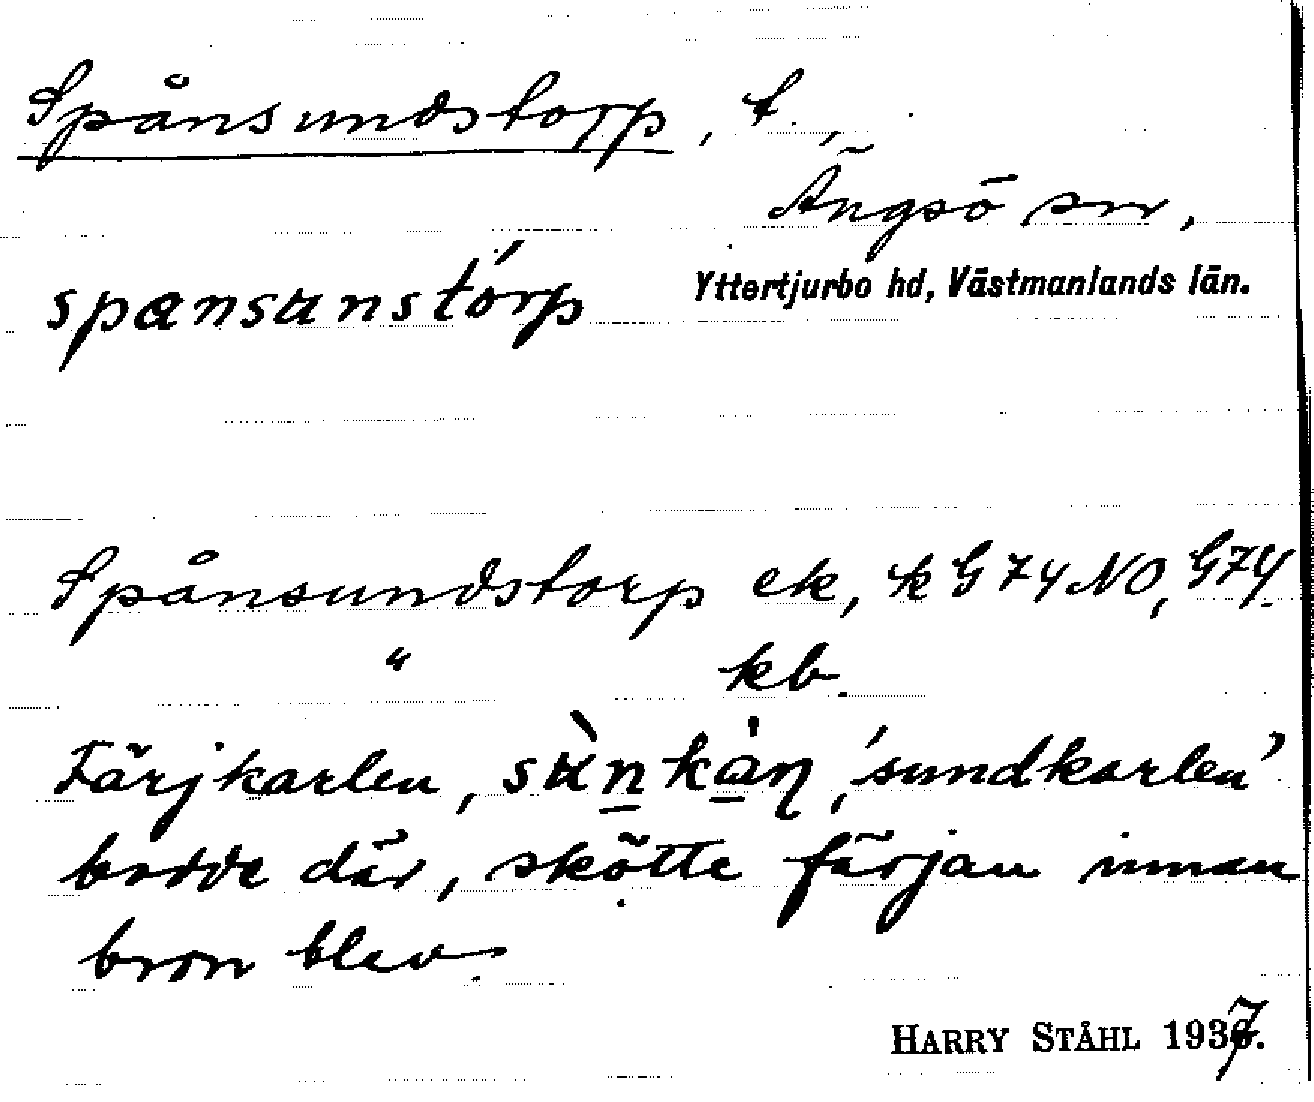 Spånsundstorp, t.,
Ängsö sn,
Yttertjurbo hd, Västmanlands län.
spansunstórp
Spånsundstorp ek, k G 74 NO, G74
" kb.
Färjkarlen, sùnkàn, 'sundkarlen'
bodde där, skötte färjan innan
bron blev.
HARRY STÅHL 1937.